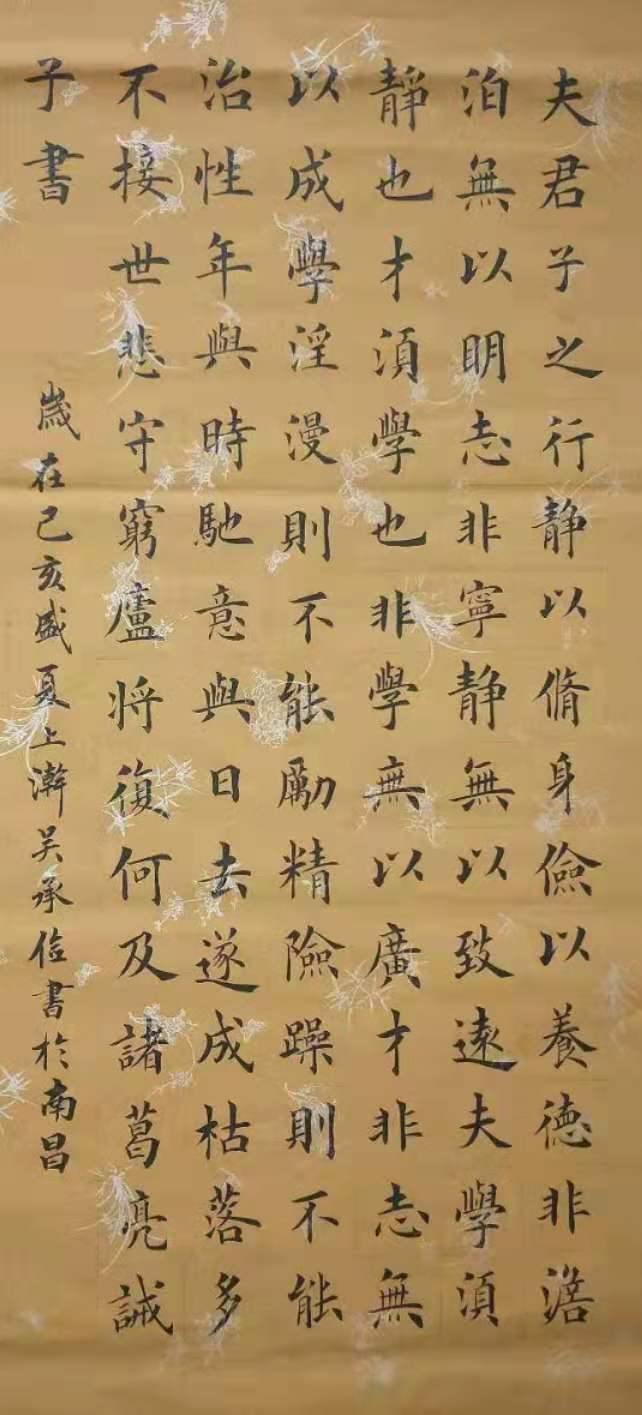 夫君子之行静以脩身儉以養德非澹
泊無以明志非寧静無以致遠夫學須
静也才須學也非學無以廣才非志無
以成學淫漫則不能勵精險躁則不能
治性年與時馳意與日去遂成枯落多
不接世悲守窮廬將復何及諸葛亮誡
子書
歲在己亥盛夏上澣吴承信書於南昌